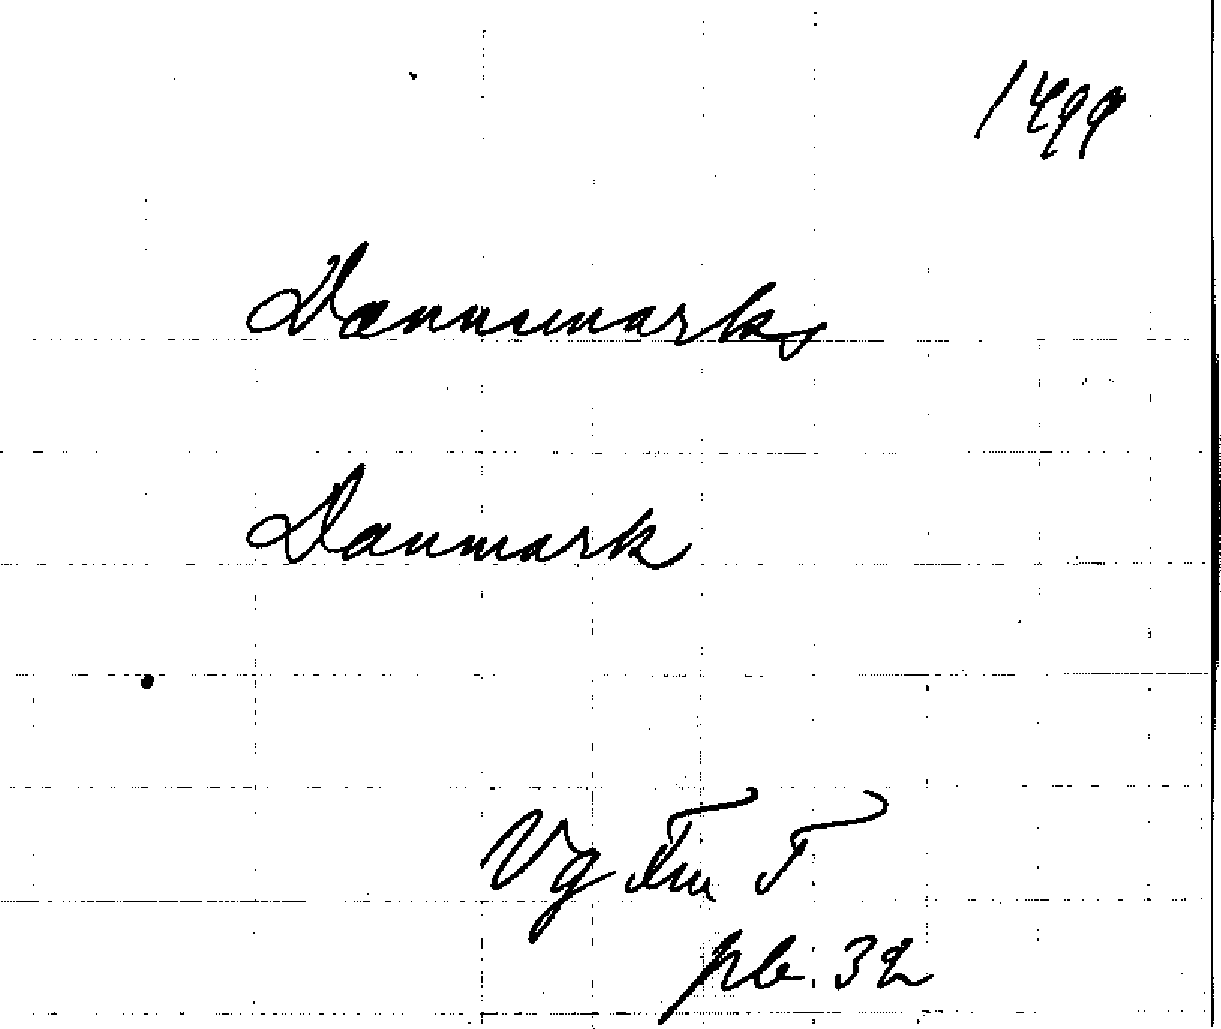 1499
Dannumarks
Danmark
Vg Fru T
pb. 32